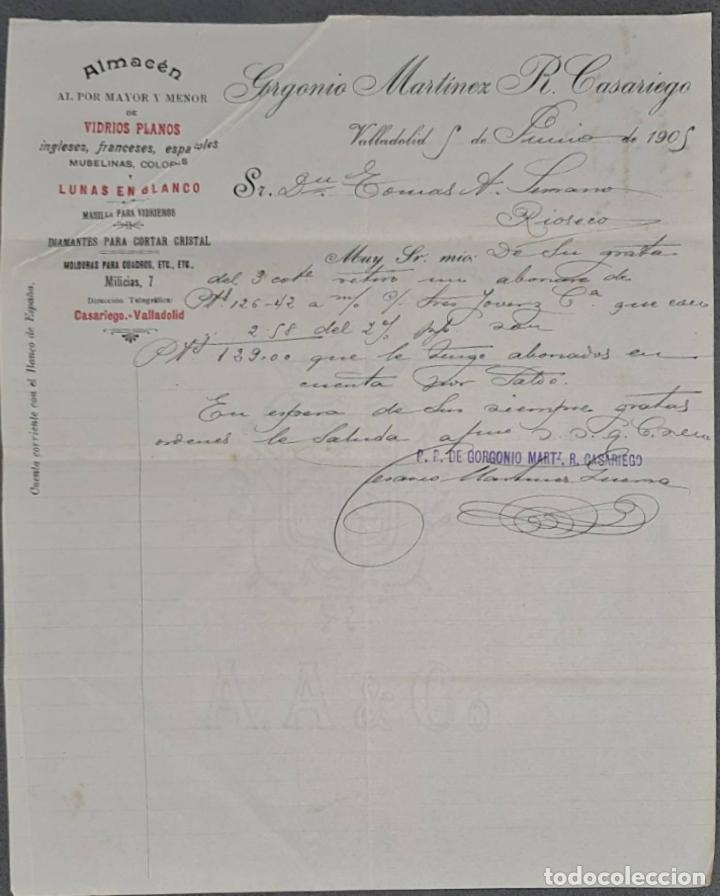 Almacén
AL POR MAYOR Y MENOR
DE
VIDRIOS PLANOS
ingleses, franceses, españoles
MUSELINAS, COLORES
Y
LUNAS EN BLANCO
MASILLA PARA VIDRIEROS
DIAMANTES PARA CORTAR CRISTAL
MOLDURAS PARA CUADROS, ETC., ETC.,
Milicias, 7
Dirección Telegráfica:
Casariego.-Valladolid
Cuenta corriente con el Banco de España.
Gorgonio Martínez R. Casariego
Valladolid 5 de Junio de 1905
Sr. Dn Tomas A. Serrano
Rioseco
Muy Sr. mio: De su grata
del 3 cote retiro un abonare de
Pts 126-42 a m/o c/ Ca que con
2-58 del 2% p/o son
Pts 129.00 que le tengo abonados en
cuenta por Saldo.
En espera de sus siempre gratas
ordenes le Saluda afmo S. S. q.
P. P. DE GORGONIO MARTZ. R. CASARIEGO
Martinez
C. & A. A.
todocoleccion